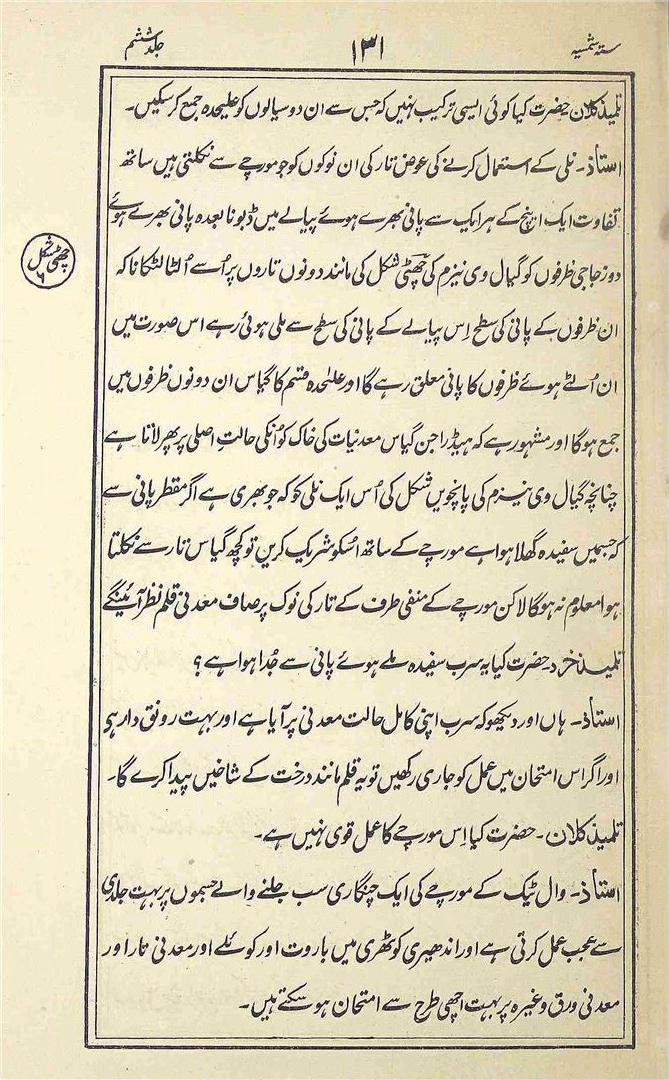 ستہ شمسیہ
۱۳۱
جلد ششم
تلمیذ کلان۔ حضرت کیا کوئی ایسی ترکیب نہیں کہ جس سے ان دو سیالوں کو علیحدہ جمع کر سکیں۔
استاذ۔ نلی کے استعمال کرنے کی عوض تار کی ان نوکوں کو جو مورچے سے نکلتی ہیں ساتھ
تفاوت ایک اینچ کے ہر ایک سے پانی بھرے ہوئے پیالے میں ڈبونا بعدہ پانی بھرے ہوئے
دو زجاجی ظرفوں کو گیال وی نیزم کی چھٹی شکل کی مانند دونوں تاروں پر اُسے اُلٹا لٹکانا کہ
ان ظرفوں کے پانی کی سطح اِس پیالے کے پانی کی سطح سے ملی ہوئی رہے اس صورت میں
ان اُلٹے ہوئے ظرفوں کا پانی معلق رہے گا اور علٰحدہ قسم کا گیاس ان دونوں ظرفوں میں
جمع ہوگا اور مشہور ہے کہ ہیڈراجن گیاس معدنیات کی خاک کو اُنکی حالتِ اصلی پر پھر لاتا ہے
چنانچہ گیال وی نیزم کی پانچویں شکل کی اُس ایک نلی کو کہ جو بھری ہے اگر مقطر پانی سے
کہ جسمیں سفیدہ گھلا ہوا ہے مورچے کے ساتھ اسکو شریک کرین تو کچھ گیاس تار سے نکلتا
ہوا معلوم نہ ہوگا لاکن مورچے کے منفی طرف کے تار کی نوک پر صاف معدنی قلم نظر آئینگے
تلمیذ خرد۔ حضرت کیا یہ سرب سفیدہ ملے ہوئے پانی سے جُدا ہوا ہے؟
استاذ۔ ہاں اور دیکھو کہ سرب اپنی کامل حالت معدنی پر آیا ہے اور بہت رونق دار ہی
اور اگر اس امتحان میں عمل کو جاری رکھیں تو یہ قلم مانند درخت کے شاخیں پیدا کرے گا۔
تلمیذ کلان۔ حضرت کیا اِس مورچے کا عمل قوی نہیں ہے۔
استاذ۔ وال ٹیک کے مورچے کی ایک چنگاری سب جلنے والے جسموں پر بہت جلدی
سے عجب عمل کرتی ہے اور اندھیری کوٹھری میں باروت اور کوئلے اور معدنی تار اور
معدنی ورق وغیرہ پر بہت اچھی طرح سے امتحان ہو سکتے ہیں۔
چھٹی شکل
۶